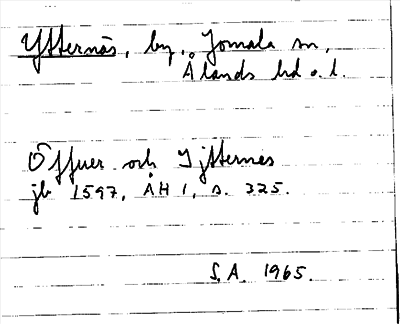 Ytternäs, by, Jomala sn,
Ålands hd o. l.
Öffuer och Ijtternes
jb 1597, ÅH 1, s. 325.
S.A. 1965.